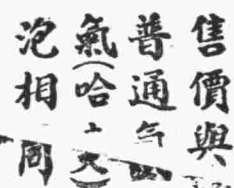 售價與
普通气
氣(哈
泡相同